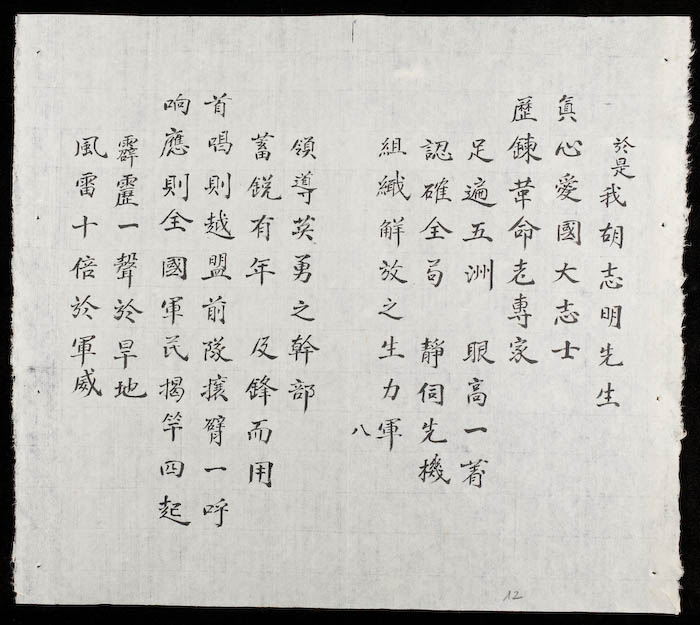 於是我胡志明先生
真心愛國大志士
歷鍊革命老專家
足遍五洲 眼高一着
認確全局 靜伺先機
組織解放之生力軍
八
領導英勇之幹部
蓄銳有年 反鋒而用
首唱則越盟前隊攘臂一呼
响應則全國軍民揭竿四起
霹靂一聲於旱地
風雷十倍於軍威
12